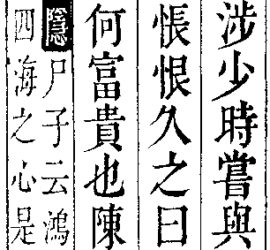 涉少時嘗與
悵恨久之曰
何富貴也陳
隱尸子云鴻
四海之心是